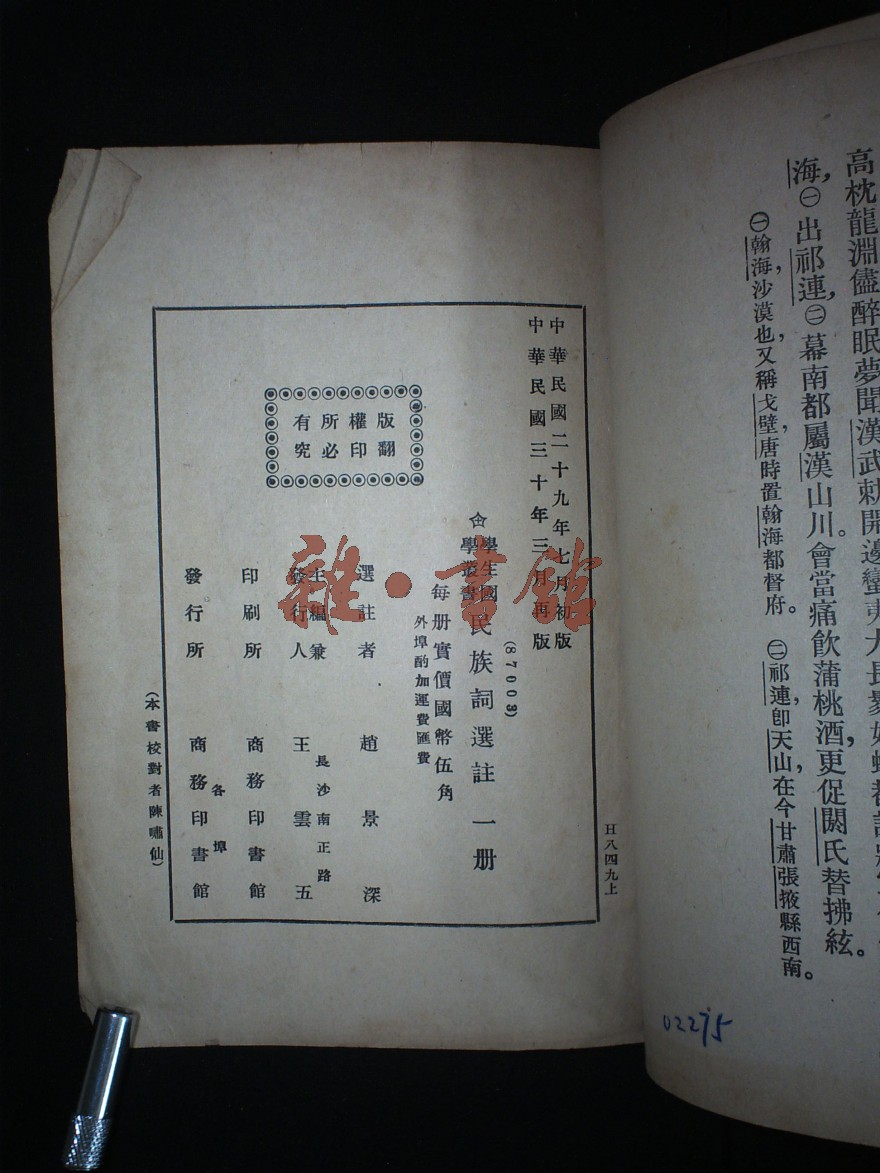 高枕龍淵儘醉眠夢聞漢武勅開邊蠻夷大長
海，㊀出祁連，㊁幕南都屬漢山川。會當痛飲蒲桃酒，更促閼氏替拂絃。
㊀翰海，沙漠也，又稱戈壁，唐時置翰海都督府。　㊁祁連卽天山，在今甘肅張掖縣西南。
02275
H八四九上
中華民國二十九年七月初版
中華民國三十年三月再版
(87003)
學生國學叢書
民族詞選註一册
每册實價國幣伍角
外埠酌加運費匯費
版權所有
翻印必究
選註者　趙景深
主編兼發行人　王雲五
長沙南正路
印刷所　商務印書館
發行所　各埠商務印書館
(本書校對者陳嘯仙)
雜·書館